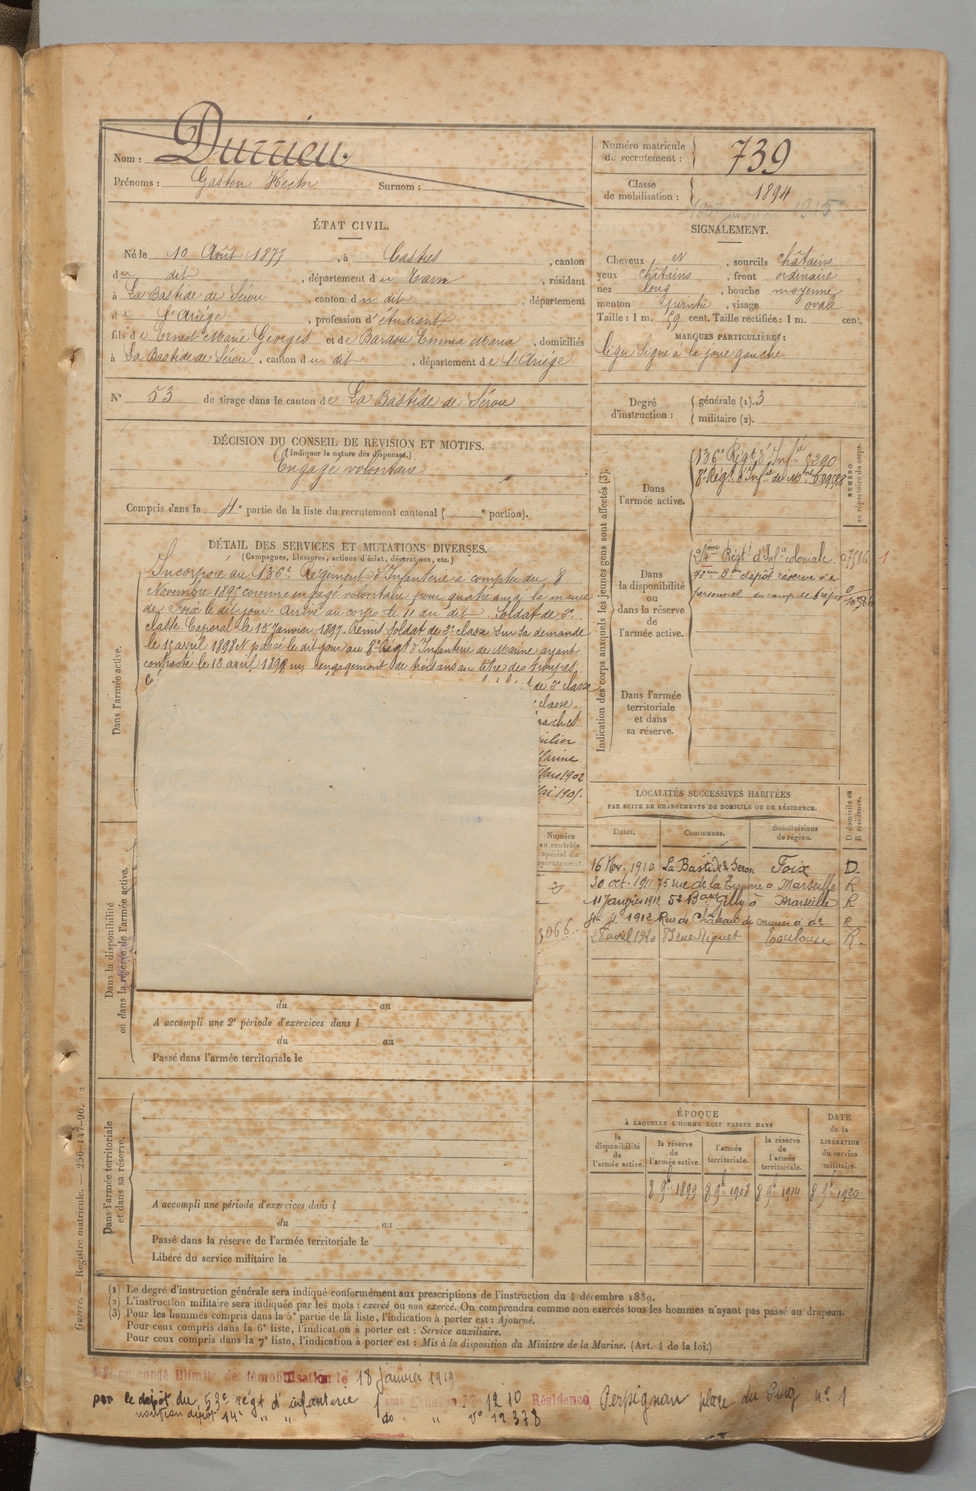 Nom : Durrieu.
Prénoms : Gaston Hector Surnom :
Numéro matricule de recrutement : 739
Classe de mobilisation : 1894
ÉTAT CIVIL.
Né le 10 Août 1877, à Castres, canton
du dit, département du Tarn, résidant
à La Bastide de Sérou, canton du dit, département
de l'Ariège, profession d'étudiant
fils de Ernest Marie Georges et de Bardou Emma Maria, domiciliés
à La Bastide de Sérou, canton du dit, département de l'Ariège
SIGNALEMENT.
Cheveux et, sourcils châtains
yeux châtains, front ordinaire
nez long, bouche moyenne
menton pointu, visage ovale
Taille : 1 m. 59 cent. Taille rectifiée : 1 m. cent.
MARQUES PARTICULIÈRES :
léger signe à la joue gauche
N° 53 de tirage dans le canton de La Bastide de Sérou
Degré d'instruction : générale (1). 3
militaire (2).
DÉCISION DU CONSEIL DE REVISION ET MOTIFS.
(Indiquer la nature des dispenses.)
Engagé volontaire
Compris dans la 4e partie de la liste du recrutement cantonal ( e portion).
DÉTAIL DES SERVICES ET MUTATIONS DIVERSES.
(Campagnes, blessures, actions d'éclat, décorations, etc.)
Dans l'armée active.
Incorporé au 136e Régiment d'Infanterie à compter du 8
Novembre 1895 comme engagé volontaire pour quatre ans, à la mairie
de Foix le dit jour. Arrivé au corps le 11 au dit. Soldat de 2e
classe. Caporal le 15 Janvier 1897. Remis soldat de 2e classe sur sa demande
le 13 avril 1898 et passé le dit jour au 8e Régt d'Infanterie de Marine ayant
contracté le 13 avril 1898 un engagement de trois ans au titre des troupes
de 2e classe
classe.
Marine
Mars 1902
Mai 1901.
Indication des corps auxquels les jeunes gens sont affectés (3).
NUMÉRO au répertoire du corps.
Dans l'armée active.
136e Régt d'Infie 6290
8e Régt d'Infie de Mne
Dans la disponibilité ou dans la réserve de l'armée active.
24ème Régt d'Infie coloniale 07586
dépôt réserve de
personnel au camp de
Dans l'armée territoriale et dans sa réserve.
LOCALITÉS SUCCESSIVES HABITÉES
PAR SUITE DE CHANGEMENTS DE DOMICILE OU DE RÉSIDENCE.
Dates. Communes. Subdivisions de région. D domicile ou R résidence.
16 Nov. 1910 La Bastide de Serou Foix D.
30 oct. 1911 75 rue de la à Marseille R
11 Janvier 1912 52 Bard Gilly à Marseille R
1912 Rue du Château R
28 avril 1920 83 rue Riquet Toulouse R.
Numéro au contrôle spécial du recrutement.
2
3066
Dans la disponibilité ou dans la réserve de l'armée active.
du au
A accompli une 2e période d'exercices dans l
du au
Passé dans l'armée territoriale le
Dans l'armée territoriale et dans sa réserve.
A accompli une période d'exercices dans l
du au
Passé dans la réserve de l'armée territoriale le
Libéré du service militaire le
ÉPOQUE
À LAQUELLE L'HOMME DOIT PASSER DANS
DATE de la LIBÉRATION du service militaire.
la disponibilité de l'armée active.
la réserve de l'armée active.
l'armée territoriale.
la réserve de l'armée territoriale.
8 9e 1899 8 9e 1908 8 9e 1914 8 9e 1920
Guerre. — Registre matricule. — 256-147-96.
(1) Le degré d'instruction générale sera indiqué conformément aux prescriptions de l'instruction du 4 décembre 1889.
(2) L'instruction militaire sera indiquée par les mots : exercé ou non exercé. On comprendra comme non exercés tous les hommes n'ayant pas passé au drapeau.
(3) Pour les hommes compris dans la 5e partie de la liste, l'indication à porter est : Ajourné.
Pour ceux compris dans la 6e liste, l'indication à porter est : Service auxiliaire.
Pour ceux compris dans la 7e liste, l'indication à porter est : Mis à la disposition du Ministre de la Marine. (Art. 4 de la loi.)
congé illimité de démobilisation le 18 janvier 1919
par le dépôt du 53e régt d'infanterie 1210 Résidence Perpignan place du Puig n° 1
dépôt 14e " " do " no 12378